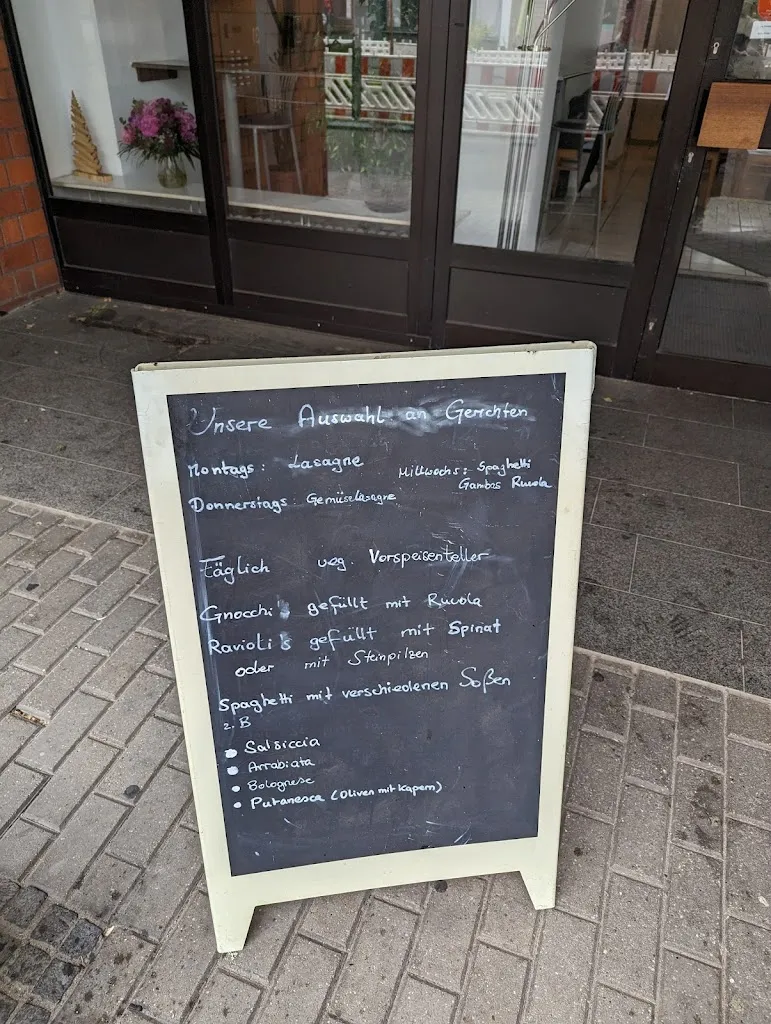 Unsere Auswahl an Gerichten
Montags: Lasagne
Mittwochs: Spaghetti
Gambas Rucola
Donnerstags: Gemüselasagne
Täglich veg. Vorspeisenteller
Gnocchi's gefüllt mit Rucola
Ravioli's gefüllt mit Spinat
oder mit Steinpilzen
Spaghetti mit verschiedenen Soßen
z.B
• Salsiccia
• Arrabiata
• Bolognese
• Putanesca (Oliven mit Kapern)